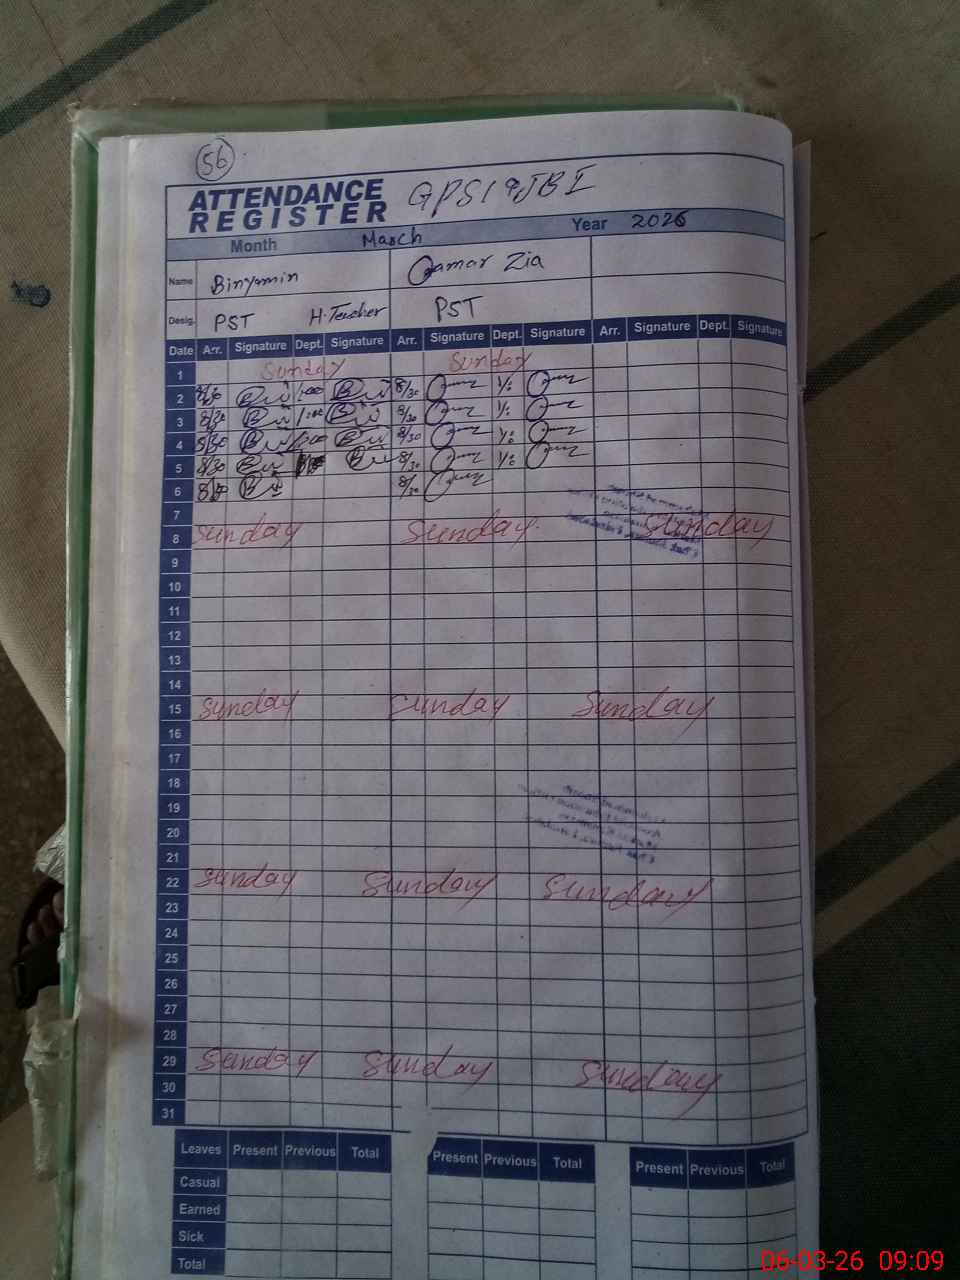 56
ATTENDANCE
REGISTER GPS 19JBI
Month March Year 2026
Name Binyamin Qamar Zia
Desig. PST H.Teacher PST
Date Arr. Signature Dept. Signature Arr. Signature Dept. Signature Arr. Signature Dept. Signature
1 Sunday Sunday
2 8/30 1:00 8/30
3 8/30 1:00 8/30
4 8/30 1:00 8/30
5 8/30 8/30
6 8/30 8/30
7
8 Sunday Sunday Sunday
9
10
11
12
13
14
15 Sunday Sunday Sunday
16
17
18
19
20
21
22 Sunday Sunday Sunday
23
24
25
26
27
28
29 Sunday Sunday Sunday
30
31
Leaves Present Previous Total Present Previous Total Present Previous Total
Casual
Earned
Sick
Total
06-03-26 09:09